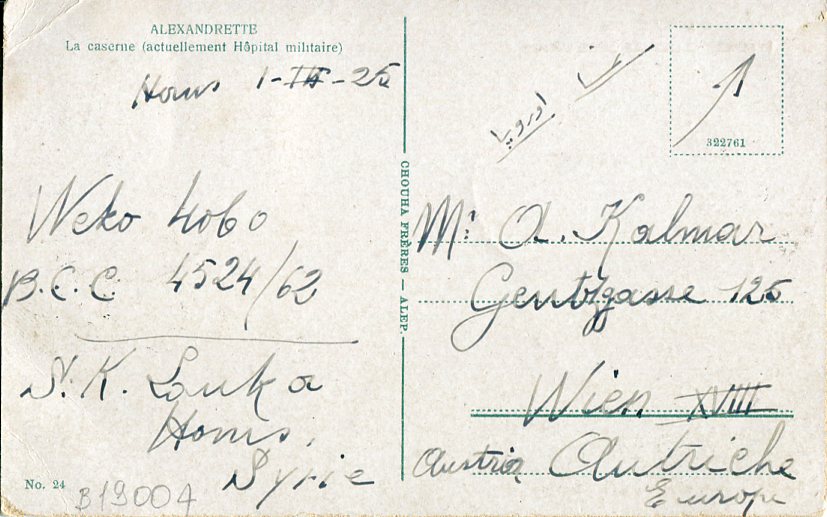 ALEXANDRETTE
La caserne (actuellement Hôpital militaire)
Homs 1-III-25
Weko 4060
B.C.C. 4524/62
S. K. Louka
Homs,
Syrie
No. 24
B19004
CHOUHA FRÈRES — ALEP
اوروپا
322761
Mr: A. Kalmar
Gentzgasse 125
Wien XVIII
Austria Autriche
Europe